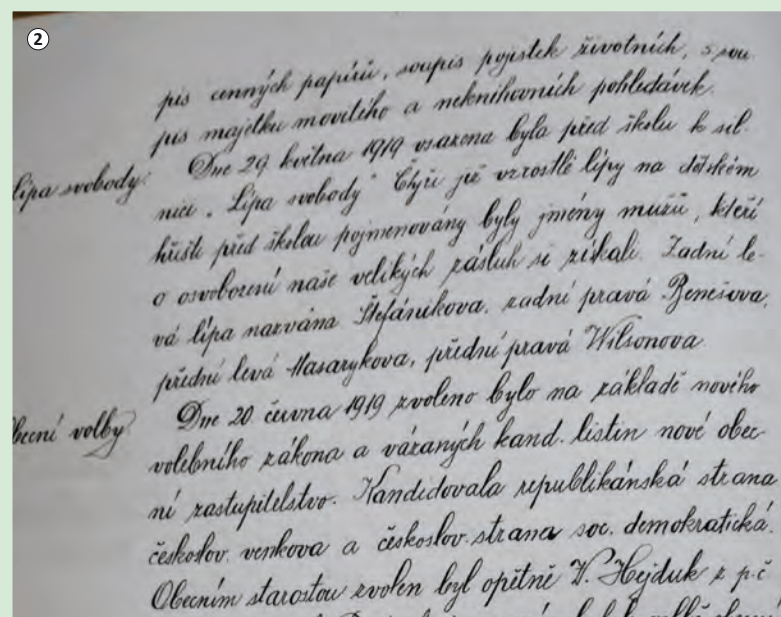 2
pis cenných papírů, soupis pojistek životních, sou
pis majetku movitého a neknihovních pohledávek.
Lípa svobody.
Dne 29. května 1919 vsazena byla před školu k sil
nici „Lípa svobody“ Čtyři již vzrostlé lípy na dětském
hřišti před školou pojmenovány byly jmény mužů, kteří
o osvobození naše velikých zásluh si získali. Zadní le-
vá lípa nazvána Štefánikova, zadní pravá Benešova,
přední levá Masarykova, přední pravá Wilsonova.
Obecní volby.
Dne 20. června 1919 zvoleno bylo na základě nového
volebního zákona a vázaných kand. listin nové obec
ní zastupitelstvo. Kandidovala republikánská strana
českoslov. venkova a českoslov. strana soc. demokratická.
Obecním starostou zvolen byl opětně V. Hejduk z p.č